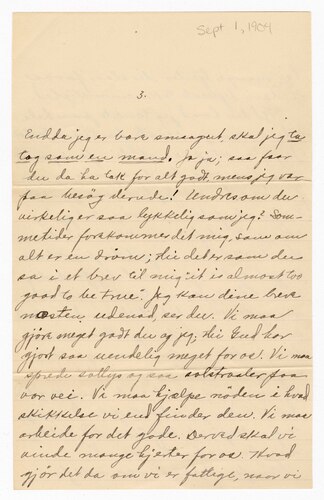 Sept 1, 1904
3.
Endda jeg er bare smaagut, skal jeg ta
tag som en mand. Ja ja; saa faar
du da ha tak for alt godt, mens jeg var
paa besög derude! Undres om du
virkelig er saa lykkelig som jeg? Som-
metider forekommer det mig, som om
alt er en dröm; thi det er som du
sa i et brev til mig: "it is almost too
good to be true" Jeg kan dine breve
næsten udenad, ser du. Vi maa
gjöre meget godt du og jeg, thi Gud har
gjort saa uendelig meget for os. Vi maa
sprede sollys og saa solstraaler paa
vor vei. Vi maa hjælpe nöden i hvad
skikkelse vi end finder den. Vi maa
arbeide for det gode. Derved skal vi
vinde mange hjerter for os. Hvad
gjör det da om vi er fattige, naar vi